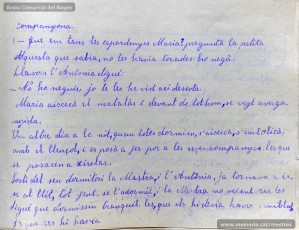 Arxiu Comarcal del Bages
companyona.
1.- Que em tens les espardenyes Maria? pregunta la petita
Aquesta que sabia, no les havia tocades ho negà.
Llavors l'Antonia digué:
- No ho neguis, jo te les he vist aci dessota.
Maria aixecà el matalàs i devant de tothom, se vegé avergo-
nyida.
Un altre dia a la nit, quan totes dormien, s'aixecà, s'embolicà
amb el llençol, i es posà a fer por a les seves companyes. les que
se posaren a xisclar.
Sortí del seu dormitori la Mestra, i l'Antònia, ja tornava a ser
al llit, tot junt se l'adormí, la Mestra no veient res les
digué que dormissin tranquil·les, que els hi devia haver semblat
perque res hi havia
www.memoria.cat/mestres